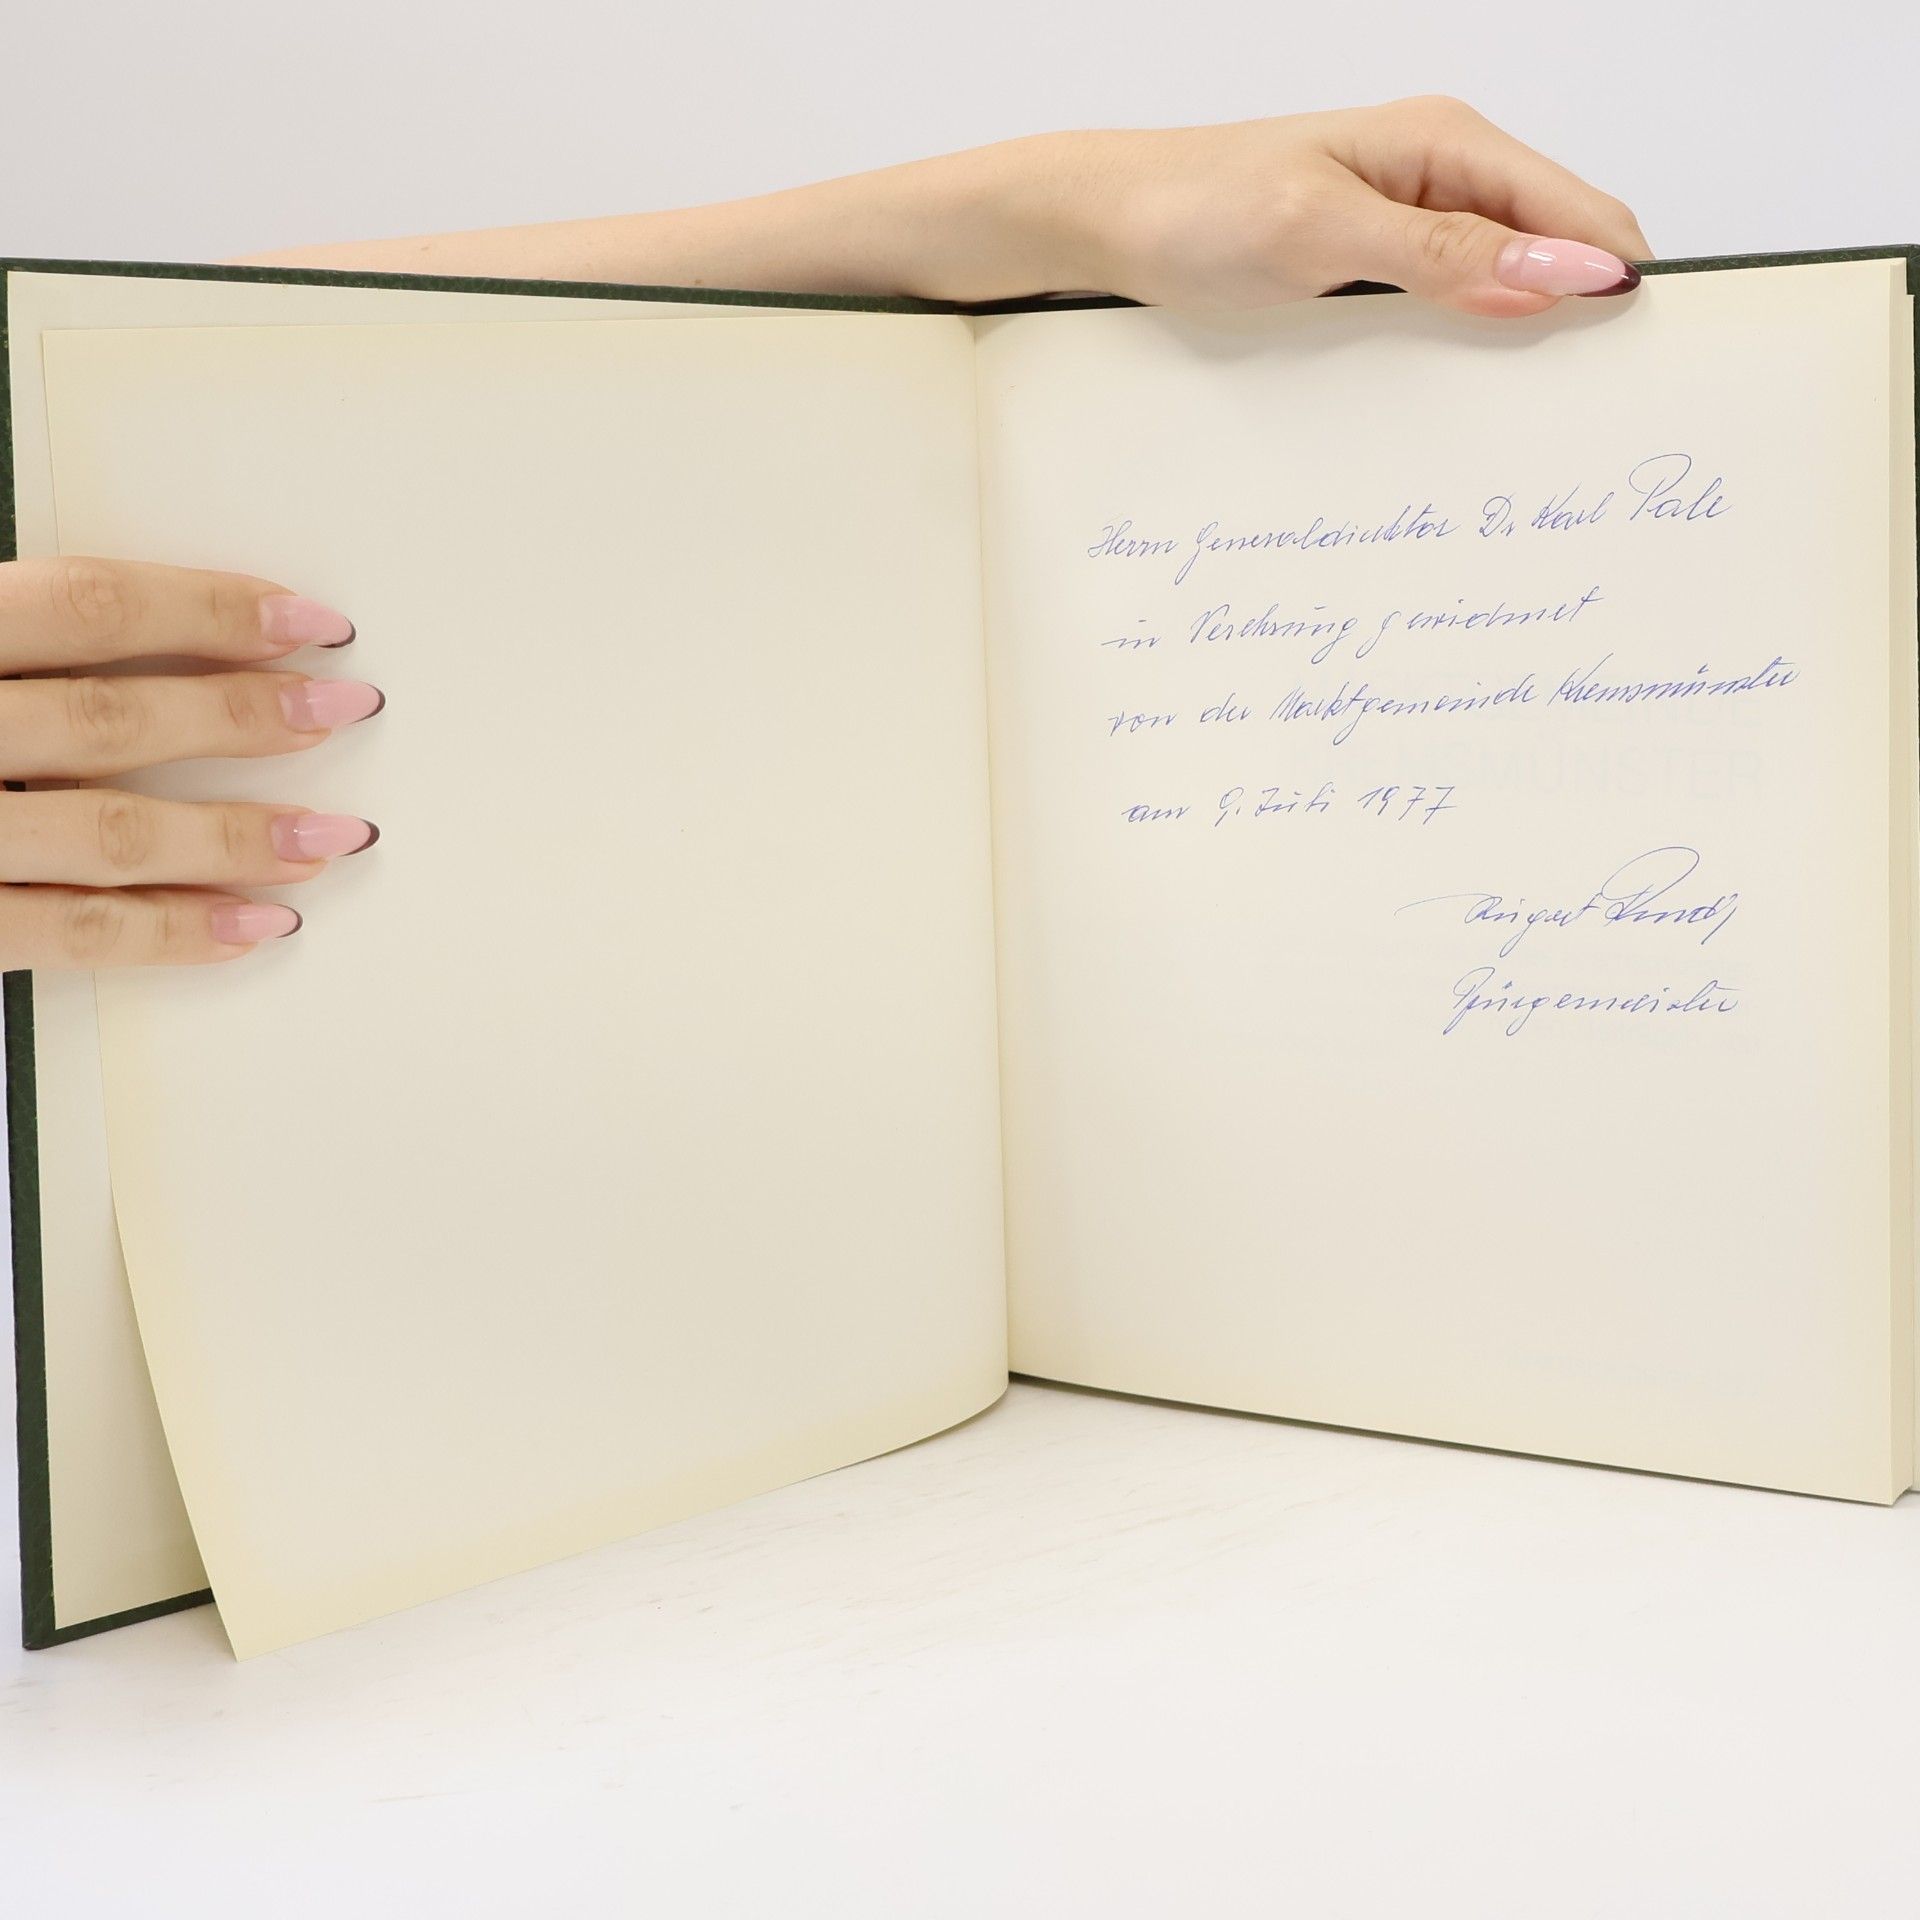 Herrn Generaldirektor Dr Karl Pale
in Verehrung gewidmet
von der Marktgemeinde Kremsmünster
am 9. Juli 1977
August
Bürgermeister